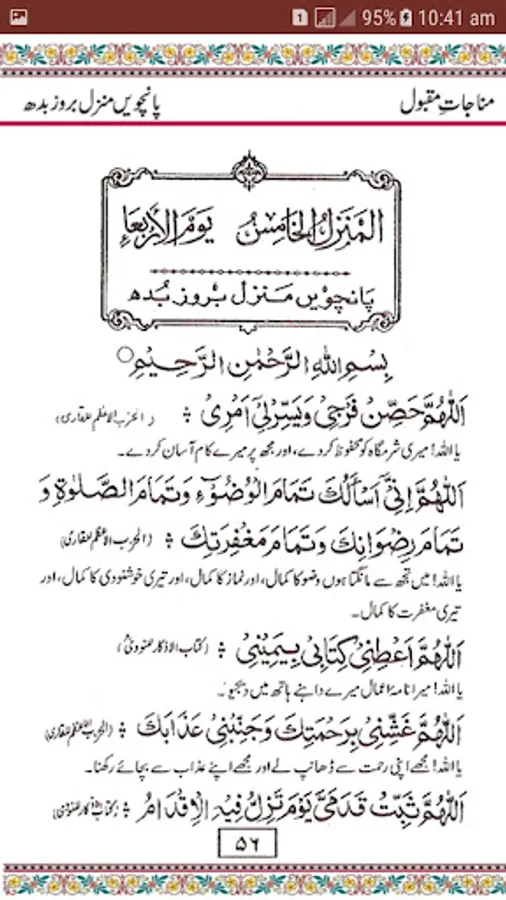 1 95% 10:41 am
مناجاتِ مقبول پانچویں منزل بروز بدھ
اَلْمَنْزِلُ الْخَامِسُ يَوْمَ الْاَرْبِعَاءِ
پانچویں منزل بروز بدھ
بِسْمِ اللهِ الرَّحْمٰنِ الرَّحِيْمِ○
اَللّٰهُمَّ حَصِّنْ فَرْجِيْ وَيَسِّرْ لِيْ اَمْرِيْ ؞ (الحزب الاعظم للقاری)
یا اللہ! میری شرمگاہ کو محفوظ کر دے، اور مجھ پر میرے کام آسان کر دے۔
اَللّٰهُمَّ اِنِّيْ اَسْاَلُكَ تَمَامَ الْوُضُوْءِ وَتَمَامَ الصَّلٰوةِ وَ
تَمَامَ رِضْوَانِكَ وَتَمَامَ مَغْفِرَتِكَ ؞ (الحزب الاعظم للقاری)
یا اللہ! میں تجھ سے مانگتا ہوں وضو کا کمال، اور نماز کا کمال، اور تیری خوشنودی کا کمال، اور
تیری مغفرت کا کمال۔
اَللّٰهُمَّ اَعْطِنِيْ كِتَابِيْ بِيَمِيْنِيْ ؞ (کتاب الاذکار للنووی)
یا اللہ! میرا نامہ اعمال میرے داہنے ہاتھ میں دیجیو۔
اَللّٰهُمَّ غَشِّنِيْ بِرَحْمَتِكَ وَجَنِّبْنِيْ عَذَابَكَ ؞ (الحزب الاعظم للقاری)
یا اللہ! مجھے اپنی رحمت سے ڈھانپ لے اور مجھے اپنے عذاب سے بچائے رکھنا۔
اَللّٰهُمَّ ثَبِّتْ قَدَمَيَّ يَوْمَ تَزِلُّ فِيْهِ الْاَقْدَامُ ؞ (کتاب الاذکار للنووی)
۵۶